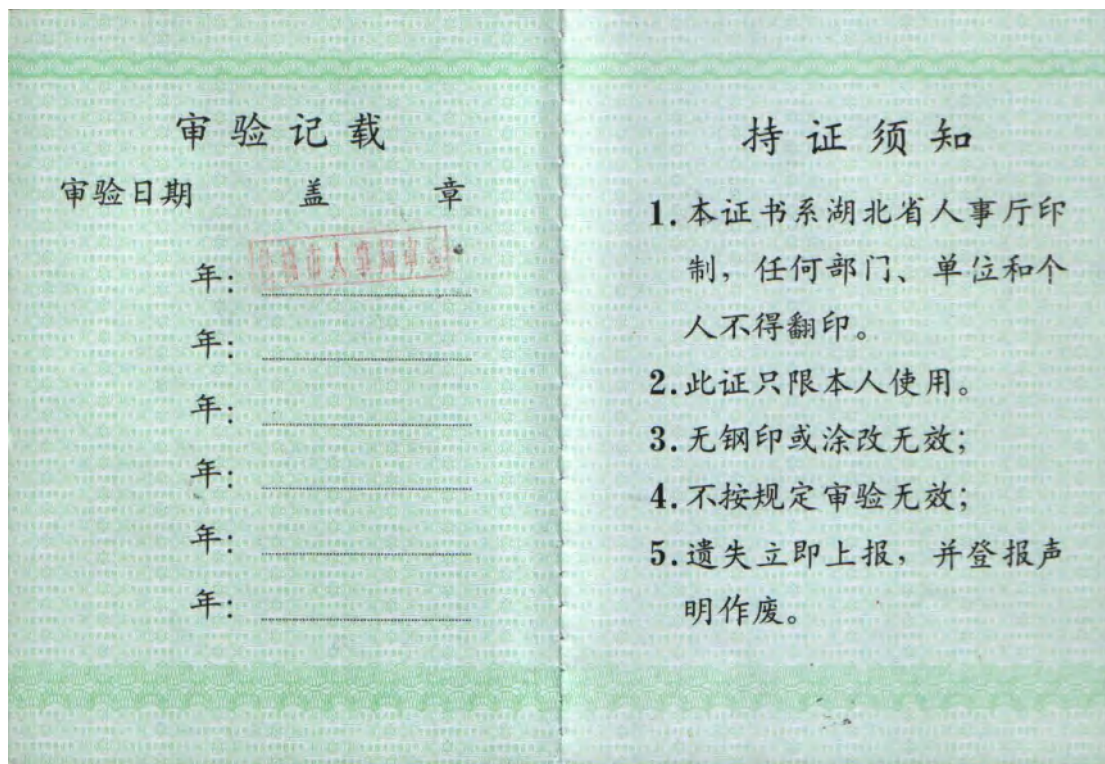 审验记载
审验日期 盖 章
年:
市人事局
年:
年:
年:
年:
年:
持证须知
1.本证书系湖北省人事厅印
制，任何部门、单位和个
人不得翻印。
2.此证只限本人使用。
3.无钢印或涂改无效；
4.不按规定审验无效；
5.遗失立即上报，并登报声
明作废。